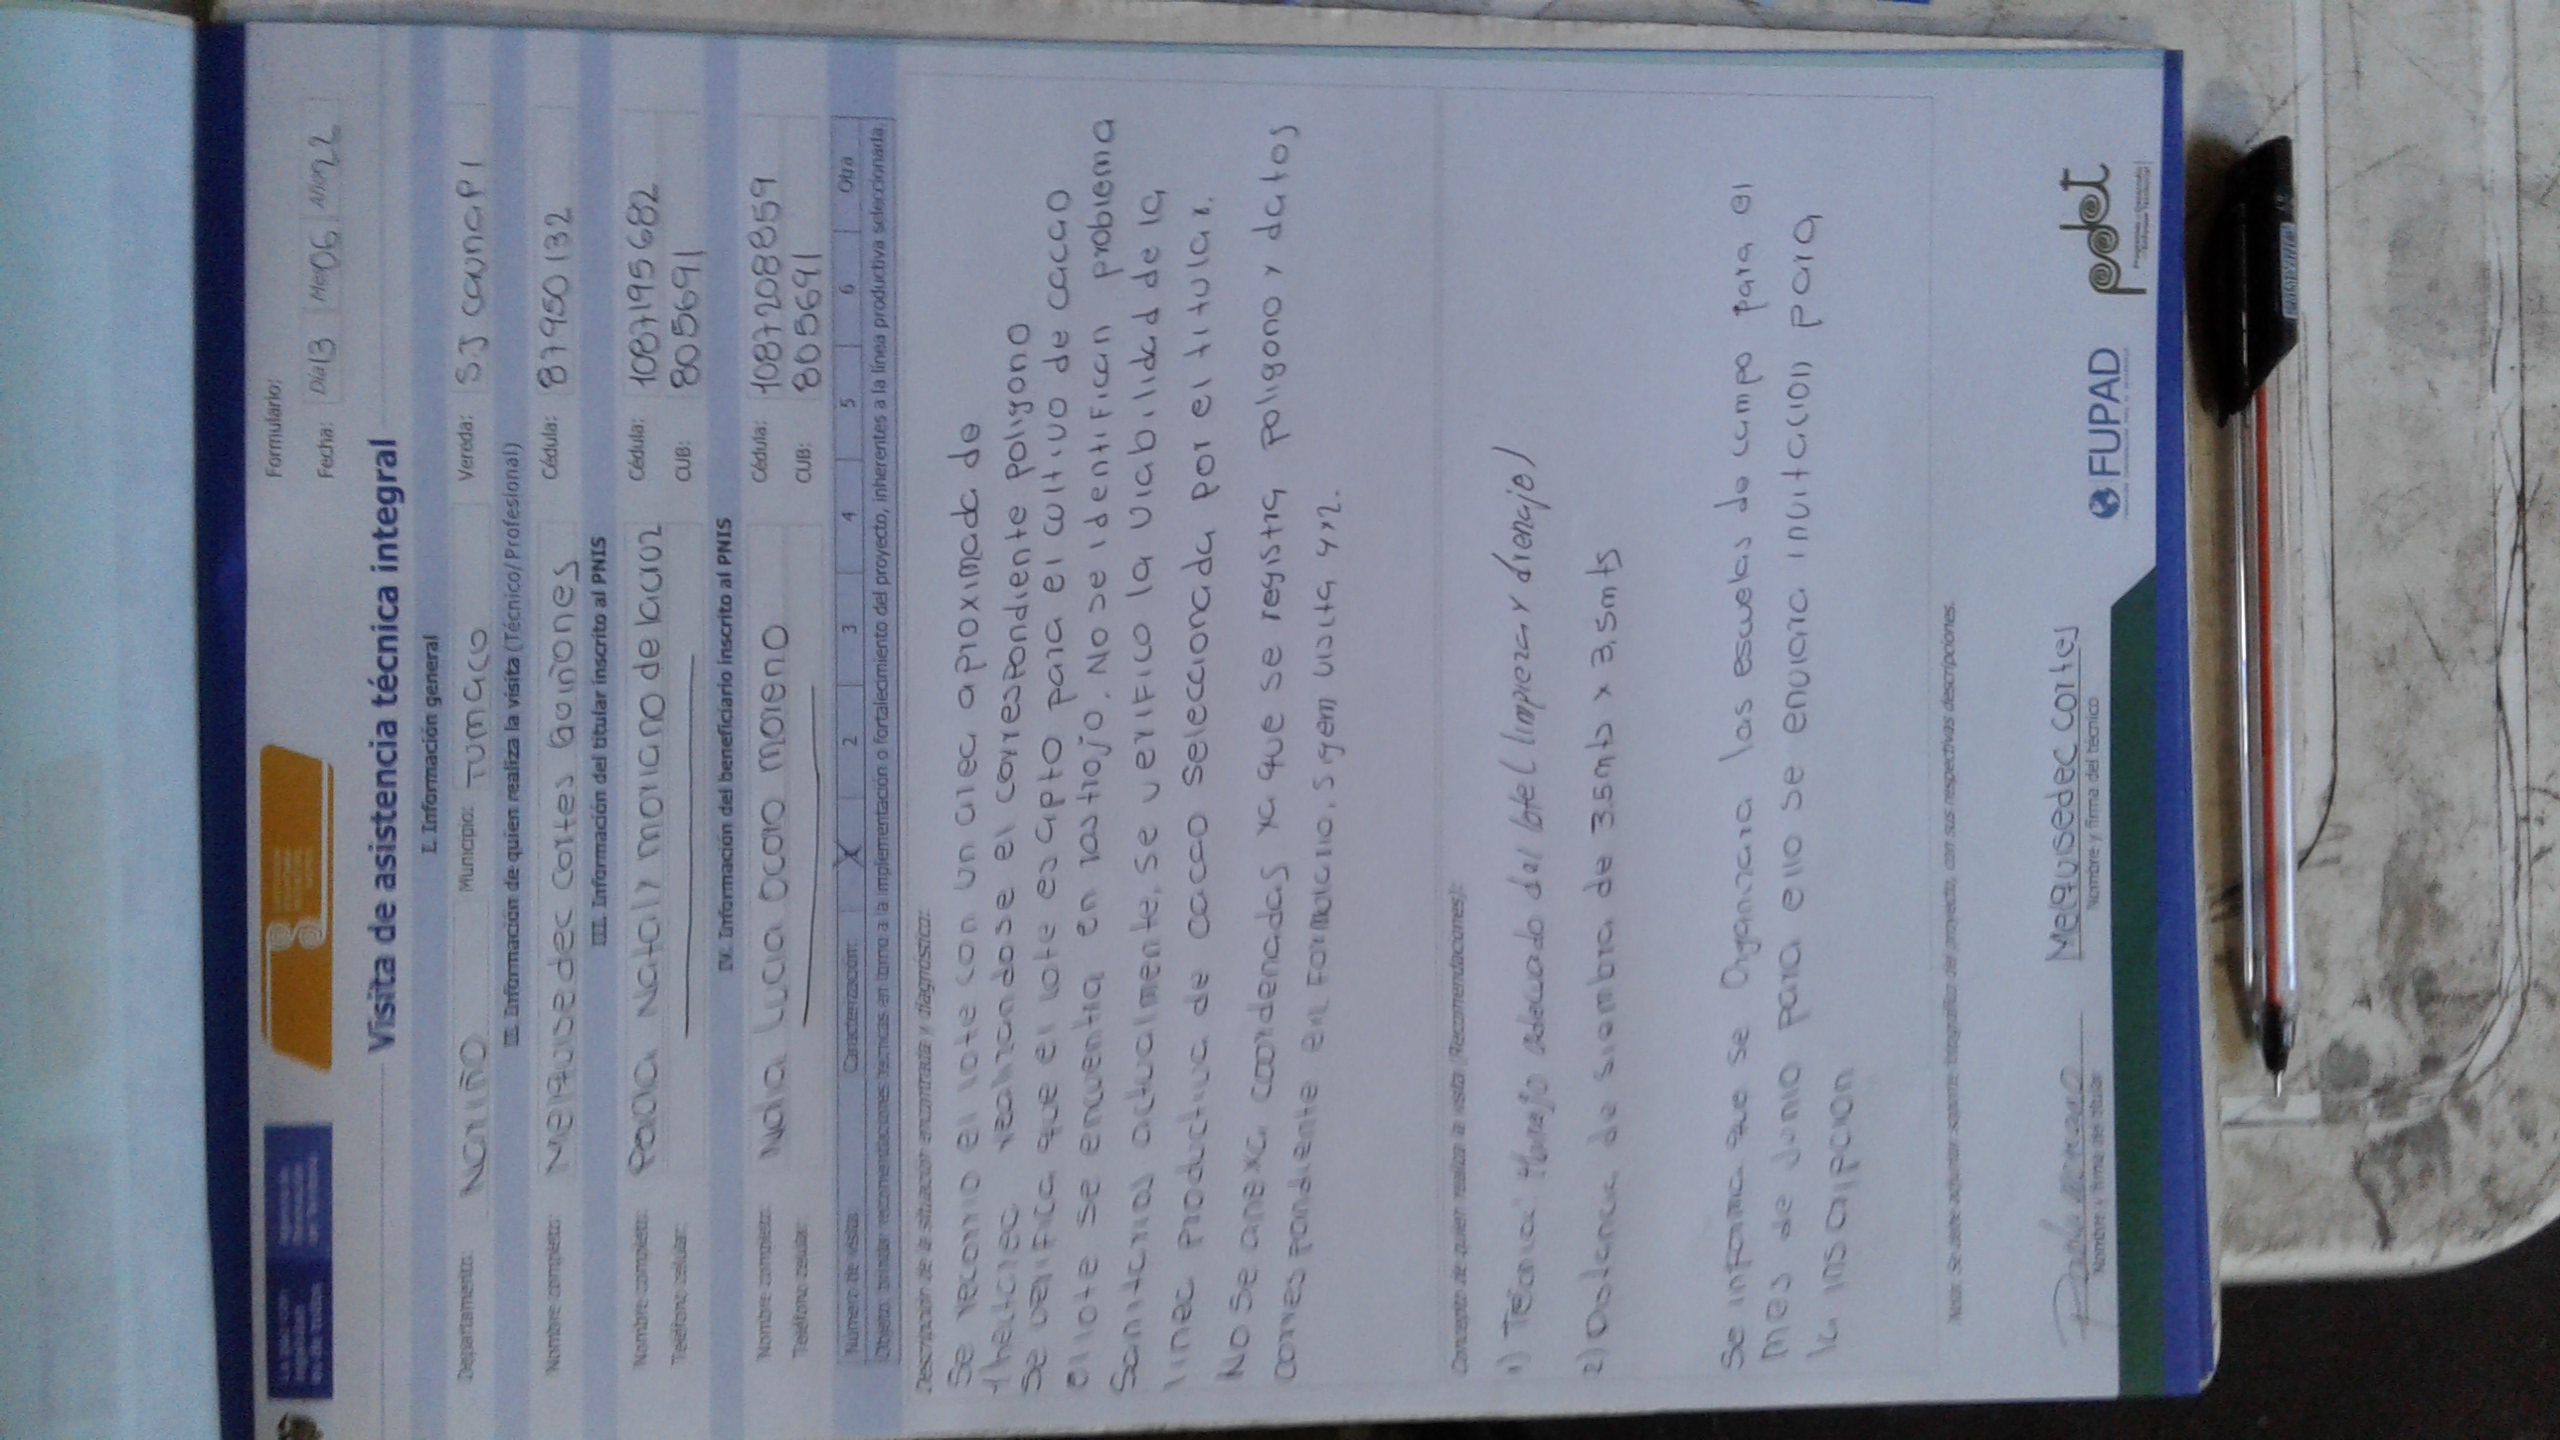 Formulario:
Fecha: Día 13 Mes 06 Año 22
Visita de asistencia técnica integral
I. Información general
Departamento: NARIÑO Municipio: TUMACO Vereda: SJ CAUNAPI
II. Información de quien realiza la visita (Técnico/Profesional)
Nombre completo: Melquisedec Cortes Quiñones Cédula: 87950132
III. Información del titular inscrito al PNIS
Nombre completo: Paola Nataly Moriano de la Cruz Cédula: 1087195682
Teléfono celular: CUB: 805691
IV. Información del beneficiario inscrito al PNIS
Nombre completo: Nidia Lucia Ocoro Moreno Cédula: 1087208859
Teléfono celular: CUB: 805691
Número de visita: Caracterización: X 2 3 4 5 6 Otra
Objeto: brindar recomendaciones técnicas en torno a la implementación o fortalecimiento del proyecto, inherentes a la línea productiva seleccionada.
Descripción de la situación encontrada y diagnóstico:
Se recorrio el lote con un area aproximada de
1hectarea realizandose el correspondiente poligono
Se verifica que el lote es apto para el cultivo de cacao
el lote se encuentra en rastrojo. No se identifican problema
Sanitarios actualmente, se verifico la viabilidad de la
linea productiva de cacao seleccionada por el titular.
No se anexa coordenadas ya que se registra poligono y datos
correspondiente en formulario, sgem visita 4x2.
Concepto de quien realiza la visita (Recomendaciones):
1) Técnica: Manejo adecuado del lote (limpieza y drenaje)
2) Distancia de siembra de 3.5mts x 3,5mts
Se informa que se organizara las escuelas de campo para el
mes de Junio para ello se enviara invitacion para
la inscripcion
Nota: Se debe adjuntar soporte fotográfico del proyecto, con sus respectivas descripciones.
Nombre y firma del titular
Melquisedec Cortes
Nombre y firma del técnico
FUPAD
pdet